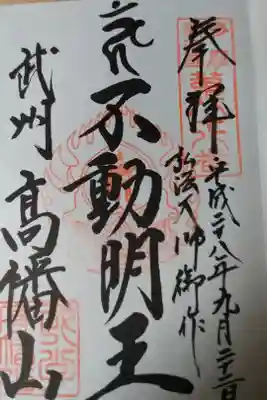 奉拝
平成二十八年九月二十二日
弘法大師御作
不動明王
武州
高幡山